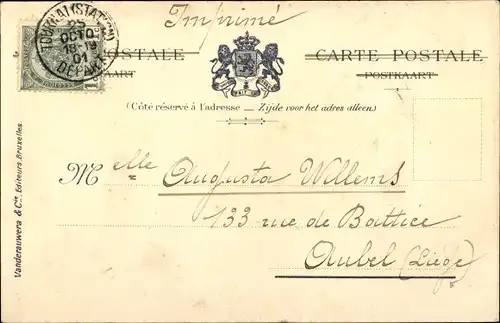 Imprimé
TOURNAI (STATION)
25
OCTO
18-19
01
DEPART
CARTE POSTALE
POSTKAART
(Côté réservé à l'adresse — Zijde voor het adres alleen.)
Melle Augusta Willems
133 rue de Battice
Aubel (Liége)
Vanderauwera & Cie, Editeurs, Bruxelles.